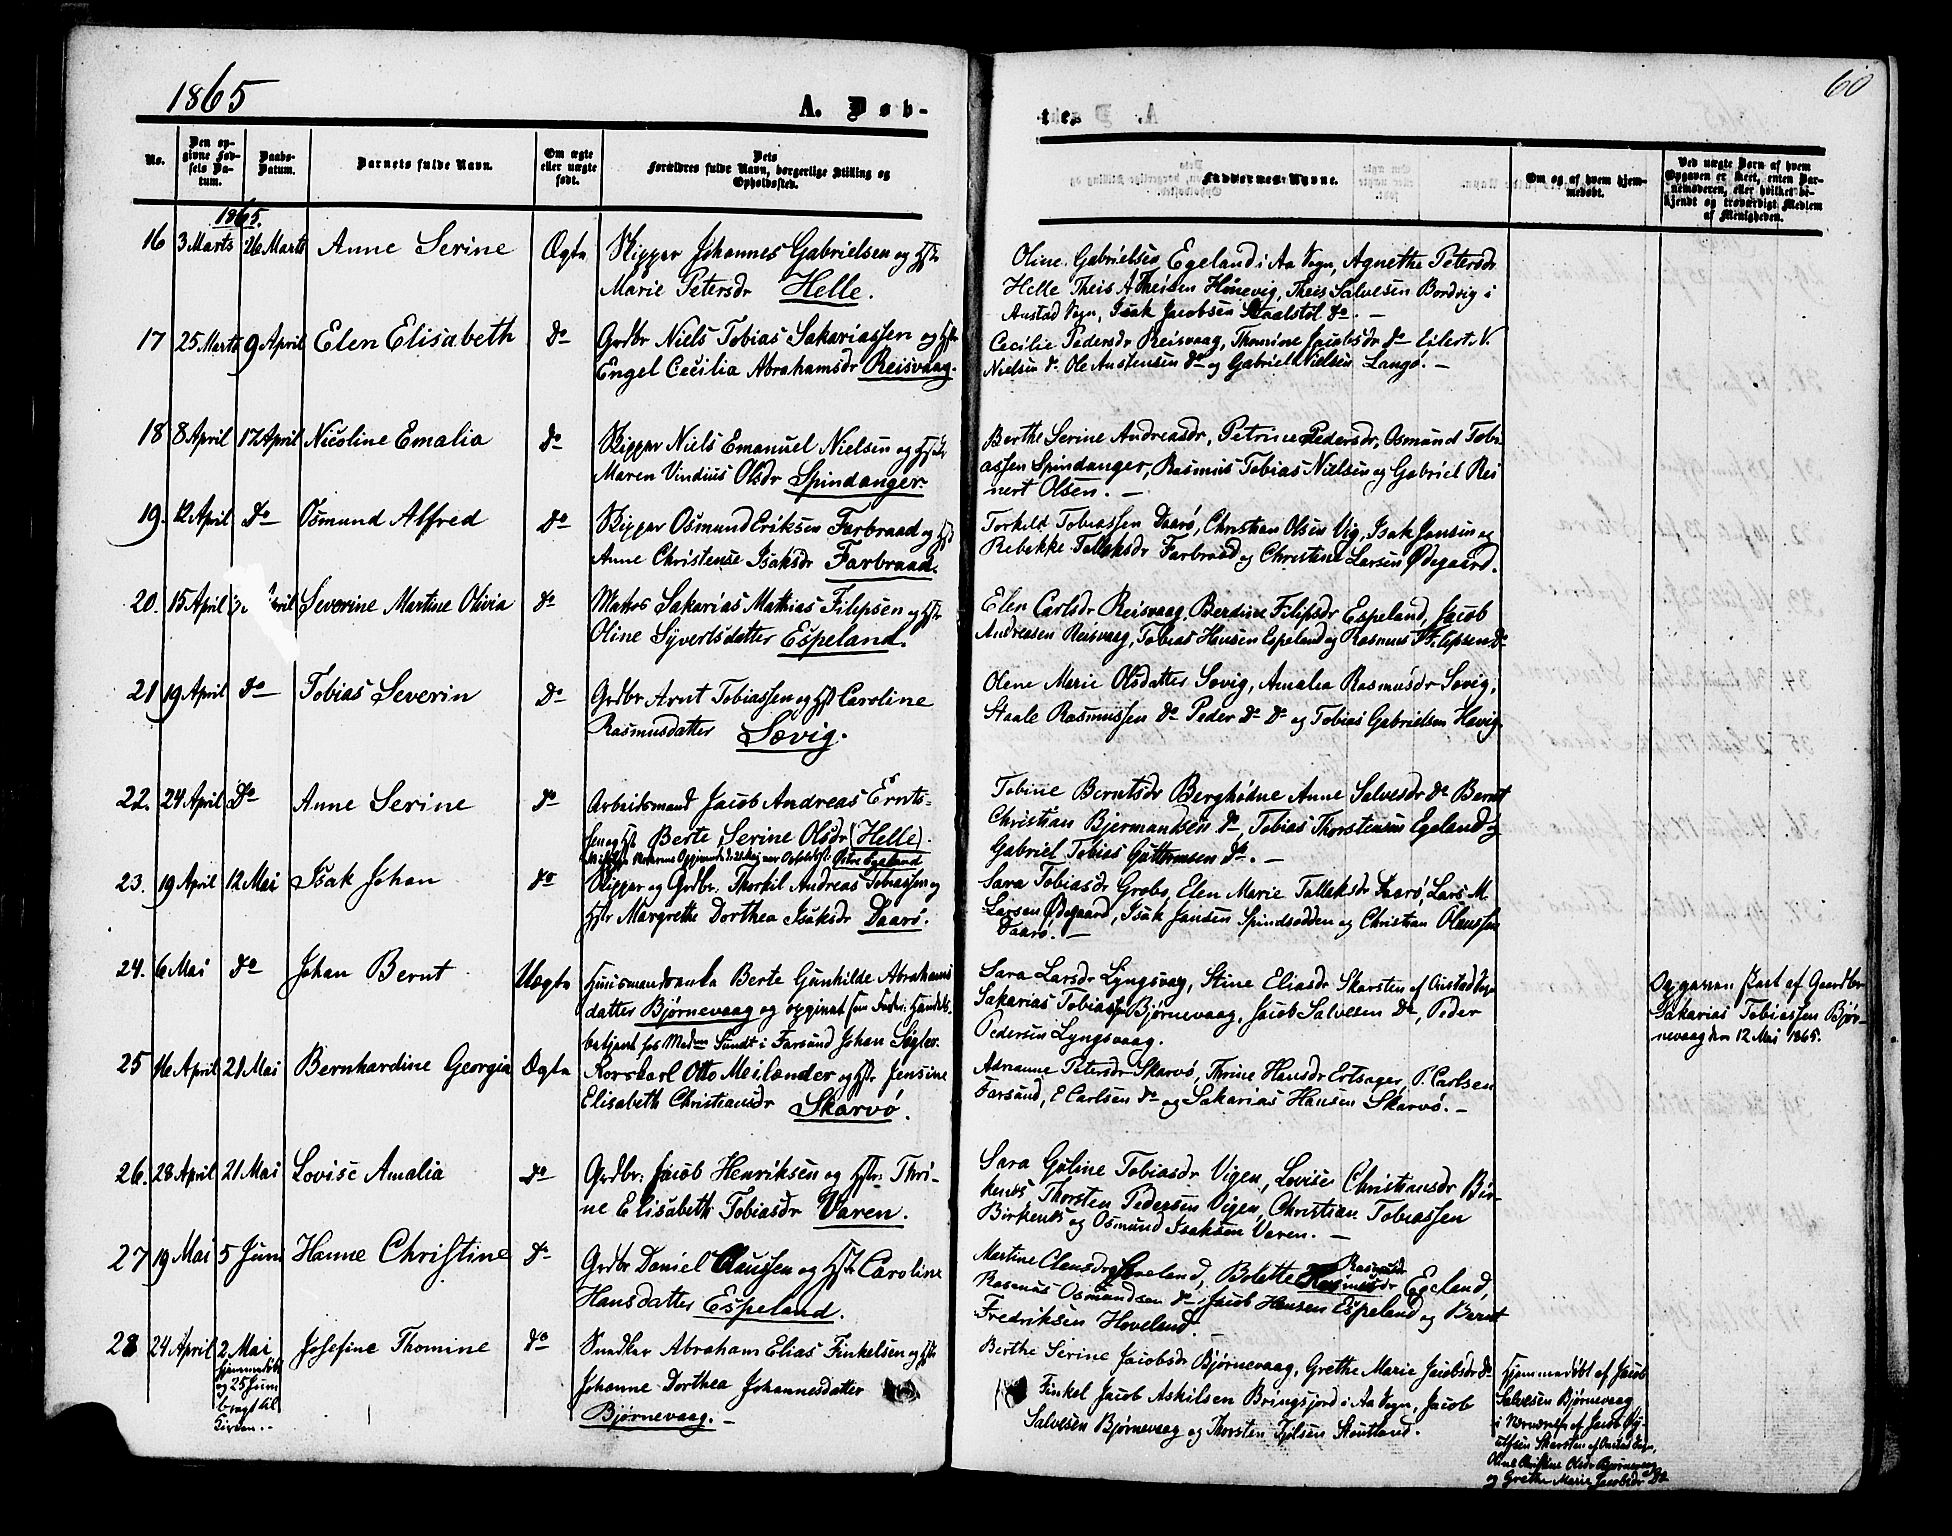 1865
A. Døb-
te.
60
No.
Den op-
givne Fød-
sels Da-
tum.
Daabs-
Datum.
Barnets fulde Navn.
Om ægte
eller uægte
født.
Dets
Forældres fulde Navn, borgerlige Stilling og
Opholdssted.
Faddernes Navne.
Om og af hvem hjem-
medøbt.
Ved uægte Børn af hvem
Opgaven er skeet, enten Bar-
nemoderen, eller hvilket be-
kjendt og troværdigt Medlem
af Menigheden.
1865.
16 3 Marts 26 Marts Anne Serine Ægte Skipper Johannes Gabrielsen og Hstr
Marie Petersdr Helle.
Oline Gabrielsen Egeland i Aa Sogn, Agnethe Petersdr
Helle Theis A Theisen Hönevig, Theis Salvesen Bordvig i
Austad Sogn, Isak Jacobsen Staalstöl do. –
17 25 Marts 9 April Elen Elisabeth do Grdbr Niels Tobias Sakariassen og Hstr
Engel Cecilia Abrahamsdr Reisvaag.
Cecilie Pedersdr Reisvaag, Thomine Jacobsdr do Eilert N.
Nielsen do Ole Austensen do og Gabriel Nielsen Langö. –
18 8 April 17 April Nicoline Emalia do Skipper Niels Emanuel Nielsen og Hstr
Maren Vindius Olsdr Spindanger.
Berthe Serine Andreasdr, Petrine Pedersdr, Osmund Tobi-
assen Spindanger, Rasmus Tobias Nielsen og Gabriel Rei
nert Olsen. –
19. 12 April do Osmund Alfred do Skipper Osmund Eriksen Farbraad og Hst
Anne Christense Isaksdr Farbraad.
Torkild Tobiassen Daarö, Christian Olsen Vig, Isak Jansen og
Rebekke Tallaksdr Farbraad og Christine Larsen Ødegaard.
20. 15 April April Severine Martine Olivia do Matros Sakarias Mathias Filipsen og Hstr
Oline Syvertsdatter Espeland.
Elen Carlsdr Reisvaag, Berdine Filipsdr Espeland, Jacob
Andreasen Reisvaag, Tobias Hansen Espeland og Rasmus Filipsen do
21 19 April do Tobias Severin do Grdbr Arnt Tobiassen og Hst Caroline
Rasmusdatter Sævig.
Olene Marie Olsdatter Sævig, Amalia Rasmusdr Sævig,
Staale Rasmussen do Peder do do og Tobias Gabrielsen Havig.
22. 24 April do Anne Serine do Arbeidsmand Jacob Andreas Ernts-
sen og Hst Berte Serine Olsdr (Helle).
Tobine Berntsdr Berghöhne Anne Salvesdr do Bernt
Christian Bjermandsen do, Tobias Thorstensen Egeland og
Gabriel Tobias Guttormsen do. –
23. 19 April 12 Mai Isak Johan do Skipper og Grdbr. Thorkil Andreas Tobiassen og
Hstr Margrethe Dorthea Isaksdr Daarö.
Sara Tobiasdr Grobs, Elen Marie Tallaksdr Daarö, Lars M.
Larsen Ødegaard, Isak Jansen Spindsodden og Christian Olaussen
Daarö. –
24. 6 Mai do Johan Bernt Uægte Huusmandsenke Berte Gunhilde Abrahams
datter Bjørnevaag og opgivet som Fader: Handels-
betjent for Madm Sundt i Farsund Johan Sigler.
Sara Larsdr Lyngsvag, Stine Eliasdr Skarsten af Austad Sogn
Sakarias Tobiassen Bjørnevaag, Jacob Salvesen do, Peder
Pedersen Lyngsvaag.
Opgaven skeet af Gaardbr
Sakarias Tobiassen Bjør-
nevaag den 12 Mai 1865.
25 16 April 21 Mai Bernhardine Georgia Ægte Korskarl Otto Meilænder og Hstr Jensine
Elisabeth Christiansdr Skarvö.
Adrianne Petersdr Skarvö, Thrine Hansdr Ertsager, P. Carlsen
Farsund, E Carlsen do og Sakarias Hansen Skarvö. –
26. 28 April 21 Mai Lovise Amalia do Grdbr: Jacob Henriksen og Hstr: Thri-
ne Elisabeth Tobiasdr Varen.
Sara Guline Tobiasdr Vigen, Lovise Christiansdr Bir-
kenes, Thorsten Pedersen Vigen, Christian Tobiassen
Birkenes og Osmund Isaksen Varen. –
27 19 Mai 5 Juni Hanne Christine do Grdbr Daniel Claussen og Hstr Caroline
Hansdatter Espeland.
Martine Clausdr Hoveland, Bolette Rasmusdr Egeland,
Rasmus Osmundsen do, Jacob Hansen Espeland og Bernt
Fredriksen Hoveland. –
28 24 April 2 Mai Josefine Thomine do Snedker Abraham Elias Finkelsen og Hstr
hjemmedøbt
og 25 Juni
bragt til
Kirken. –
Johanne Dorthea Johannesdatter
Bjørnevaag. –
Berthe Serine Jacobsdr Bjørnevaag, Grethe Marie Jacobsdr do
Finkel Jacob Askilsen Bringsjord i Aa Sogn, Jacob
Salvesen Bjørnevaag og Thorsten Fjölsen Stoutland.
Hjemmedöbt af Jacob
Salvesen Bjørnevaag
i Nærværelse af Jacob
Skarsten af Austad Sogn,
Oline Christine Olsdr Bjørnevaag
og Grethe Marie Jacobsdr do